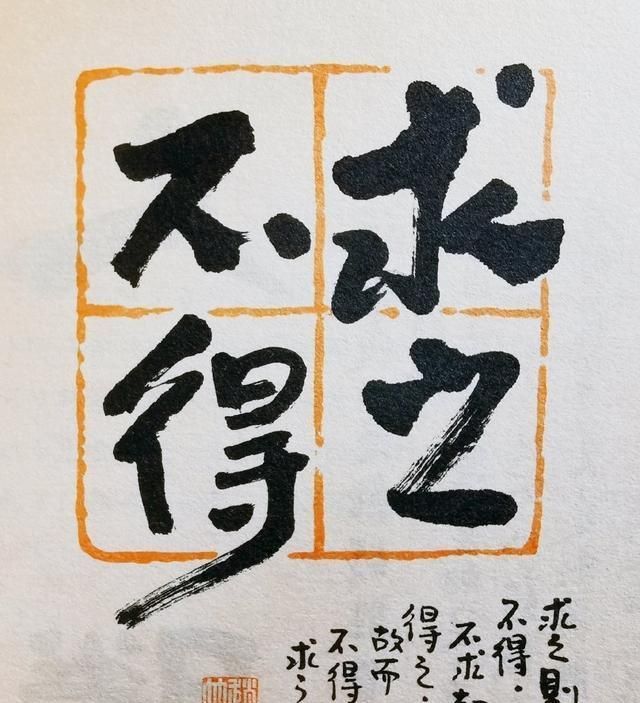 求之
不得
求之則
不得·
不求
得之·
故而
不得
求